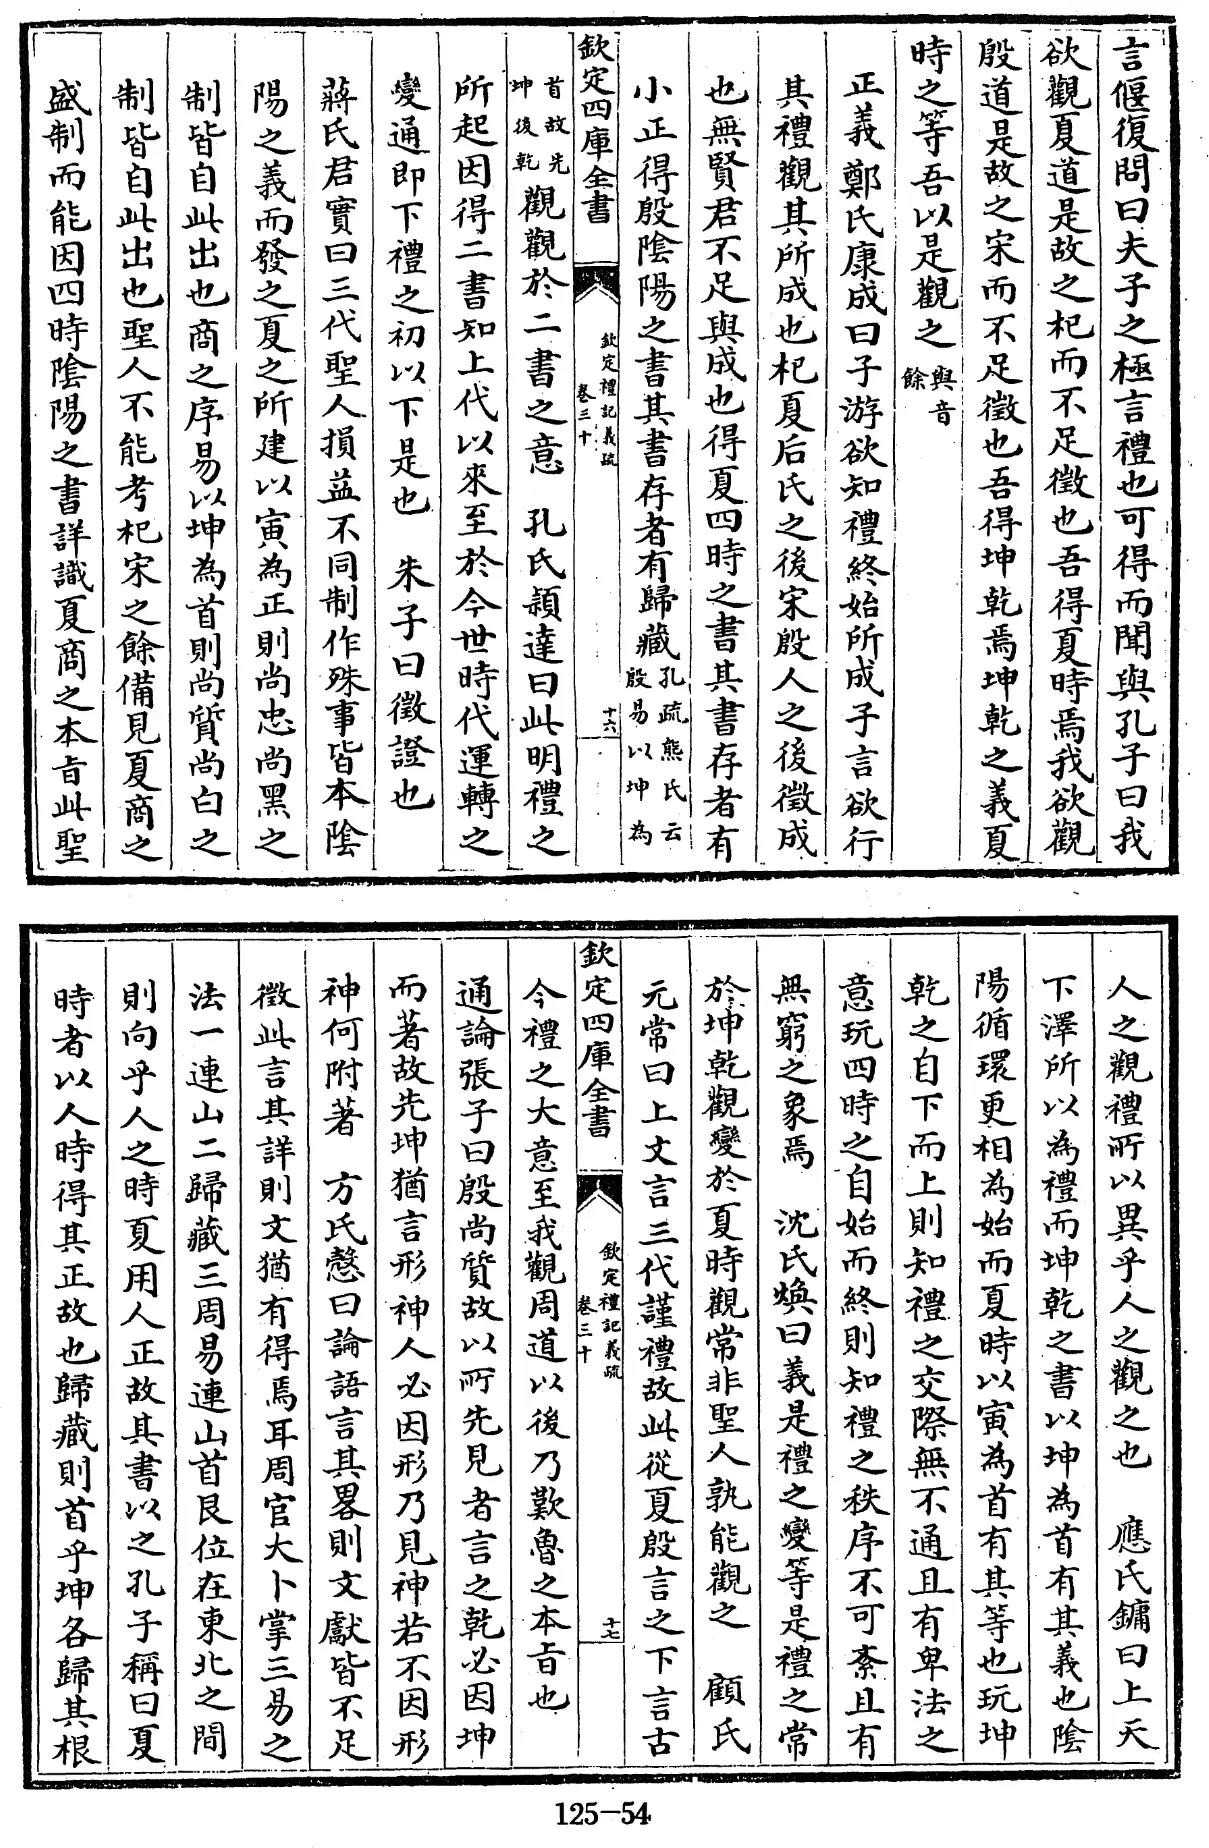 言偃復問曰夫子之極言禮也可得而聞與孔子曰我
欲觀夏道是故之杞而不足徵也吾得夏時焉我欲觀
殷道是故之宋而不足徵也吾得坤乾焉坤乾之義夏
時之等吾以是觀之與音餘
正義鄭氏康成曰子游欲知禮終始所成子言欲行
其禮觀其所成也杞夏后氏之後宋殷人之後徵成
也無賢君不足與成也得夏四時之書其書存者有
小正得殷陰陽之書其書存者有歸藏孔疏熊氏云殷易以坤為
欽定四庫全書
欽定禮記義疏
卷三十
十六
首故先坤後乾觀觀於二書之意 孔氏穎達曰此明禮之
所起因得二書知上代以來至於今世時代運轉之
變通即下禮之初以下是也 朱子曰徵證也
蔣氏君實曰三代聖人損益不同制作殊事皆本陰
陽之義而發之夏之所建以寅為正則尚忠尚黑之
制皆自此出也商之序易以坤為首則尚質尚白之
制皆自此出也聖人不能考杞宋之餘備見夏商之
盛制而能因四時陰陽之書詳識夏商之本旨此聖
人之觀禮所以異乎人之觀之也 應氏鏞曰上天
下澤所以為禮而坤乾之書以坤為首有其義也陰
陽循環更相為始而夏時以寅為首有其等也玩坤
乾之自下而上則知禮之交際無不通且有卑法之
意玩四時之自始而終則知禮之秩序不可紊且有
無窮之象焉 沈氏煥曰義是禮之變等是禮之常
於坤乾觀變於夏時觀常非聖人孰能觀之 顧氏
元常曰上文言三代謹禮故此從夏殷言之下言古
欽定四庫全書
欽定禮記義疏
卷三十
十七
今禮之大意至我觀周道以後乃歎魯之本旨也
通論張子曰殷尚質故以所先見者言之乾必因坤
而著故先坤猶言形神人必因形乃見神若不因形
神何附著 方氏慤曰論語言其畧則文獻皆不足
徵此言其詳則文猶有得焉耳周官大卜掌三易之
法一連山二歸藏三周易連山首艮位在東北之間
則向乎人之時夏用人正故其書以之孔子稱曰夏
時者以人時得其正故也歸藏則首乎坤各歸其根
125-54